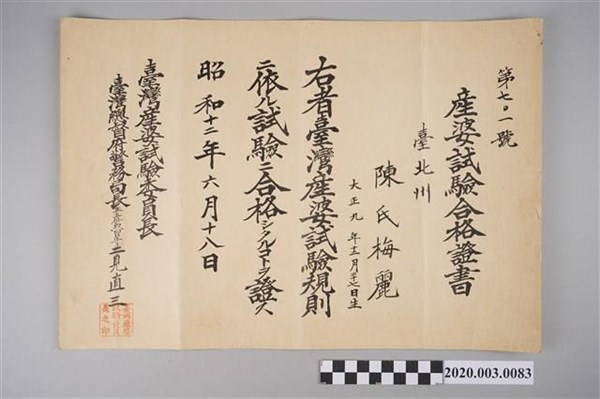 第七〇一號
産婆試驗合格證書
臺北州
陳氏梅麗
大正九年十二月廿七日生
右者臺灣産婆試驗規則
ニ依ル試驗ニ合格シタルコトヲ證ス
昭和十二年六月十八日
臺灣産婆試驗委員長
臺灣總督府警務局長 二見直三
2020.003.0083